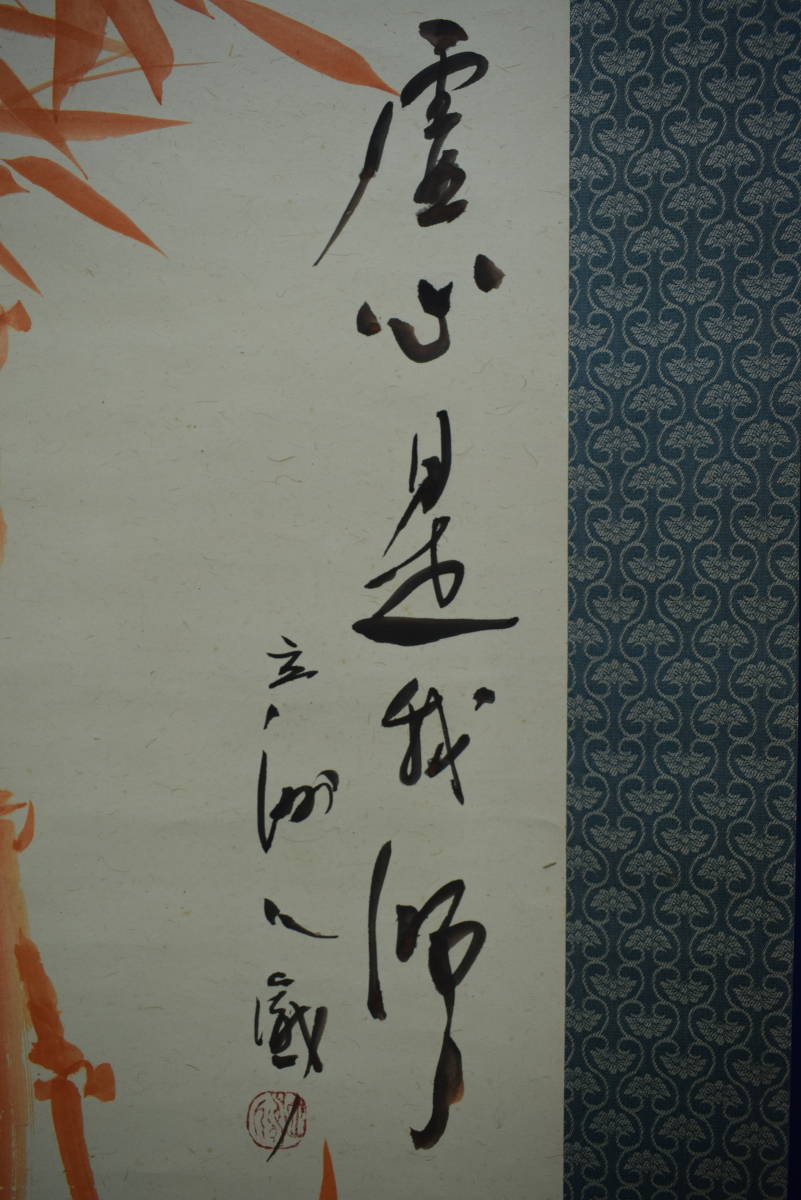 虚心是我師
立洲人戯